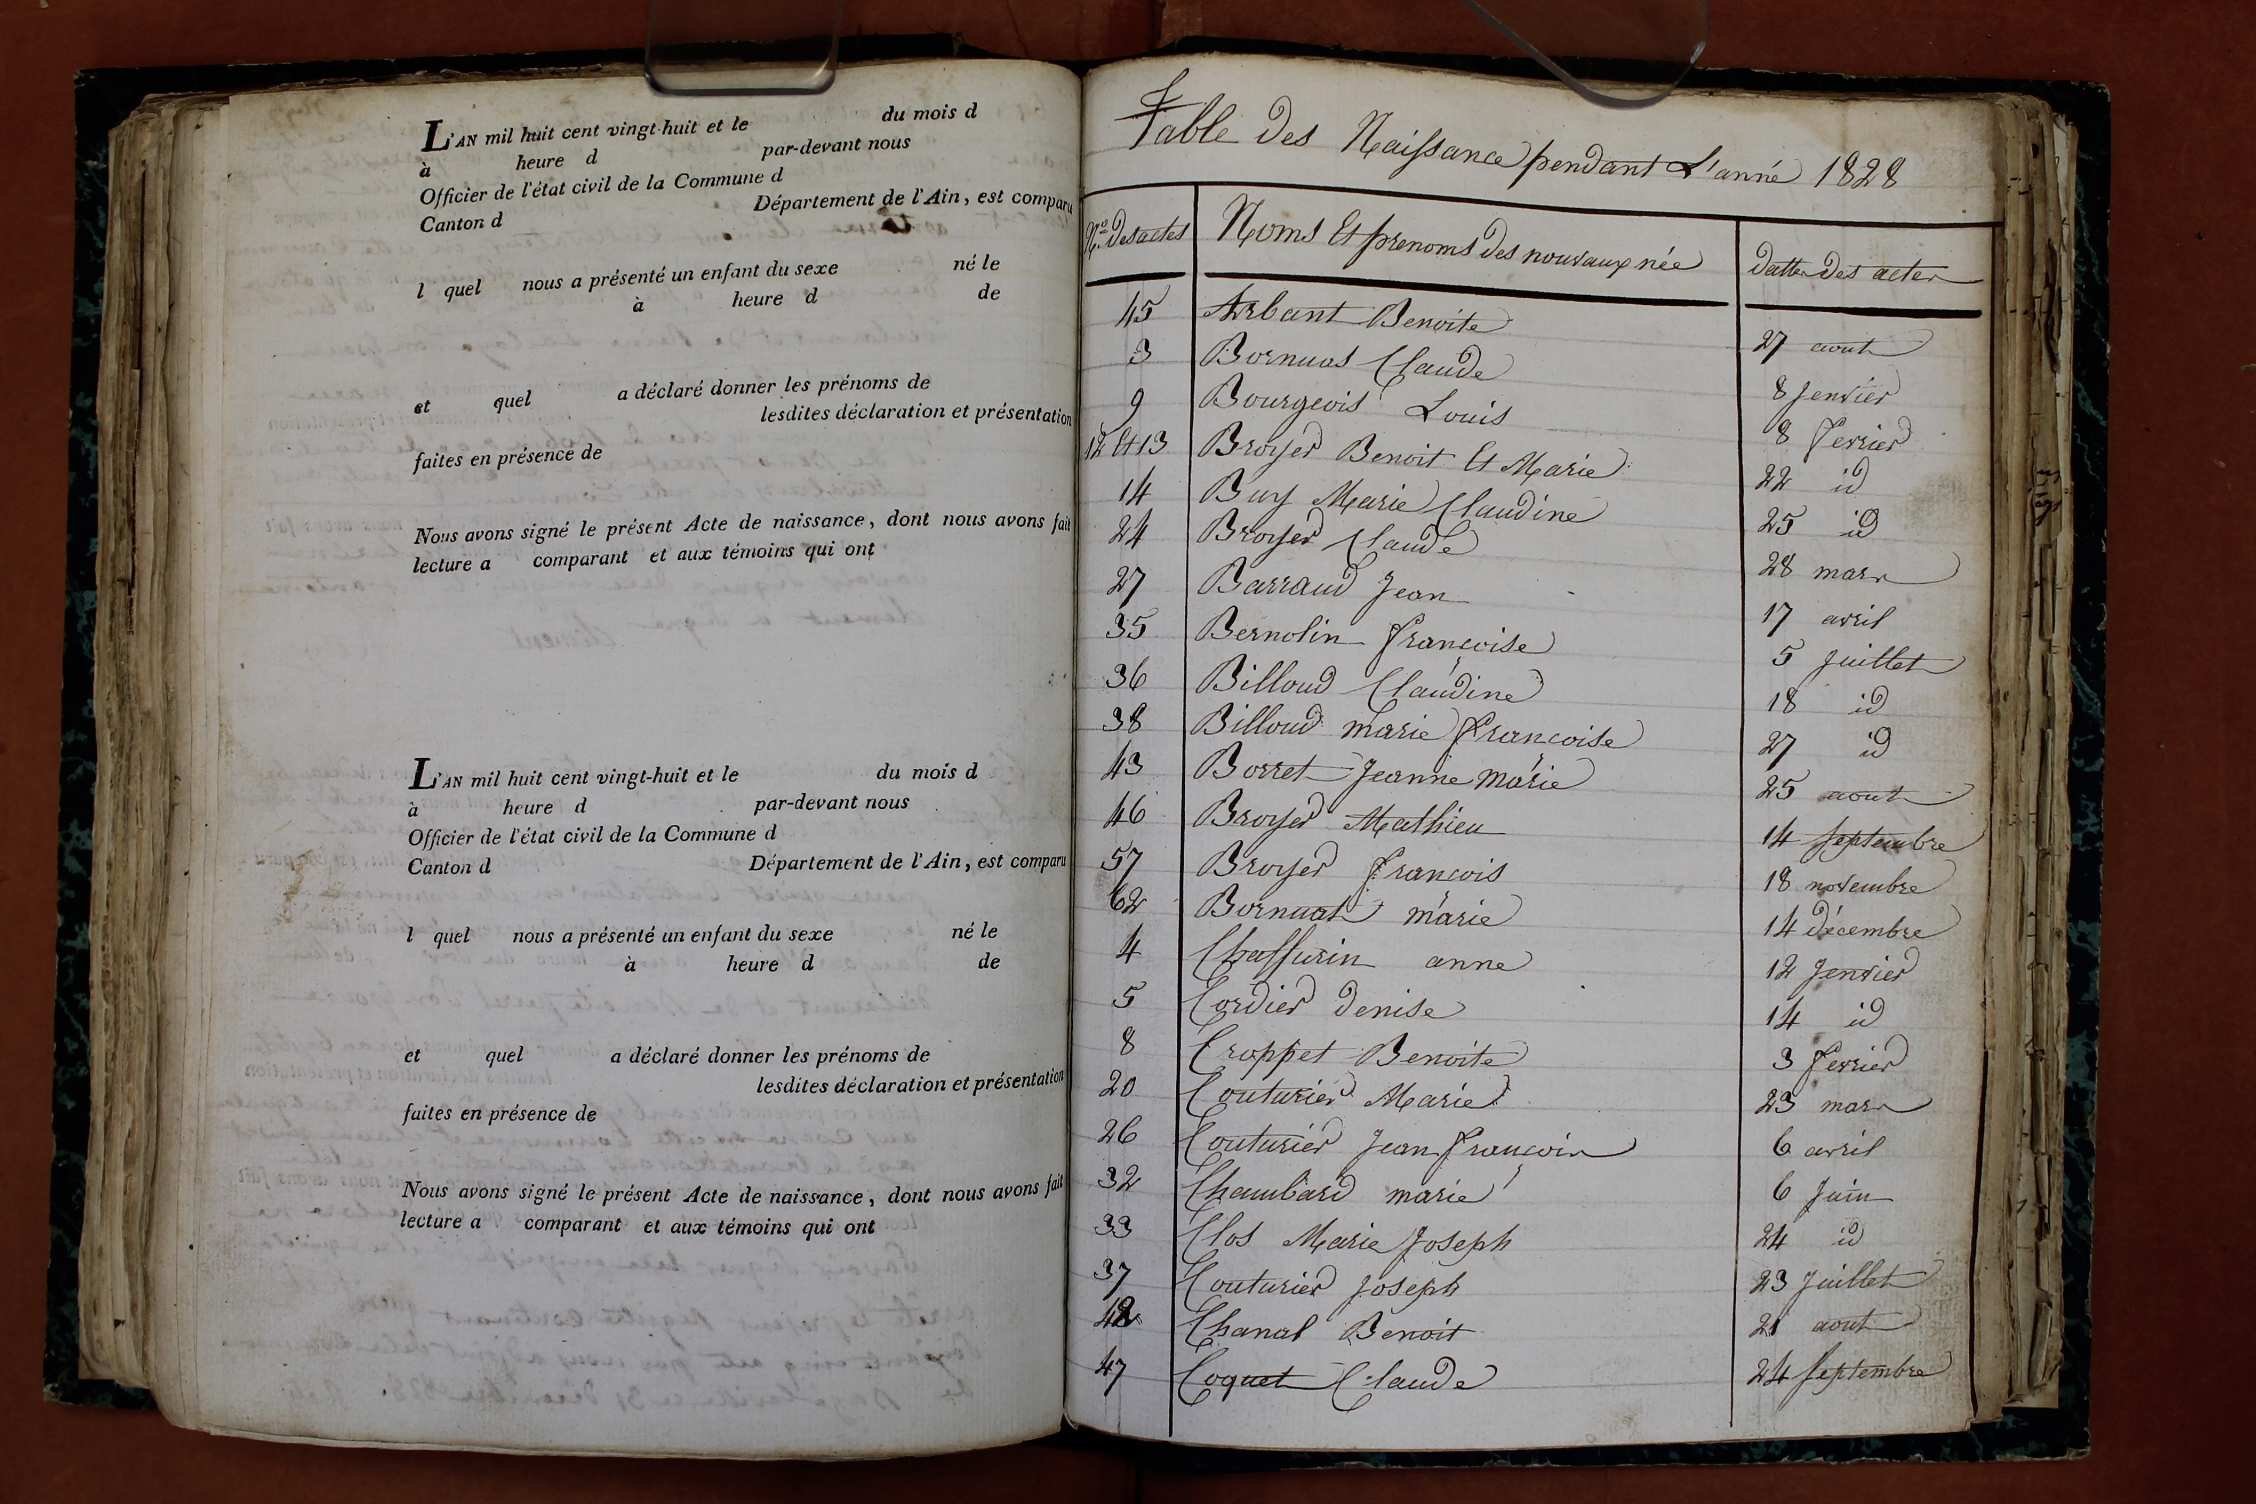 L'AN mil huit cent vingt-huit et le du mois d
à heure d par-devant nous
Officier de l'état civil de la Commune d
Canton d Département de l'Ain, est comparu
l quel nous a présenté un enfant du sexe né le
à heure d de
et quel a déclaré donner les prénoms de
lesdites déclaration et présentation
faites en présence de
Nous avons signé le présent Acte de naissance, dont nous avons fait
lecture a comparant et aux témoins qui ont
L'AN mil huit cent vingt-huit et le du mois d
à heure d par-devant nous
Officier de l'état civil de la Commune d
Canton d Département de l'Ain, est comparu
l quel nous a présenté un enfant du sexe né le
à heure d de
et quel a déclaré donner les prénoms de
lesdites déclaration et présentation
faites en présence de
Nous avons signé le présent Acte de naissance, dont nous avons fait
lecture a comparant et aux témoins qui ont
Table des Naissance pendant L'anné 1828
Nos Des actes Noms Et prenoms des nouvaux née datte Des actes
45 Arbant Benoite 27 aout
3 Bornuas Claude 8 Jenvier
9 Bourgeois Louis 8 Fevrier
12 Et 13 Broyer Benoit Et Marie 22 id
14 Buy Marie Claudine 25 id
24 Broyer Claude 28 mars
27 Barraud Jean 17 avril
35 Bernolin Françoise 5 Juillet
36 Billoud Claudine 18 id
38 Billoud marie Françoise 27 id
43 Borret Jeanne marie 25 aout
46 Broyer Mathieu 14 Septembre
57 Broyer François 18 novembre
62 Bornuat marie 14 décembre
4 Chaffurin anne 12 Jenvier
5 Cordier denise 14 id
8 Croppet Benoite 3 Fevrier
20 Couturier Marie 23 mars
26 Couturier Jean François 6 avril
32 Chambard marie 6 Juin
33 Clos Marie Joseph 24 id
37 Couturier Joseph 23 Juillet
42 Chanal Benoit 21 aout
47 Coquet Claude 24 Septembre